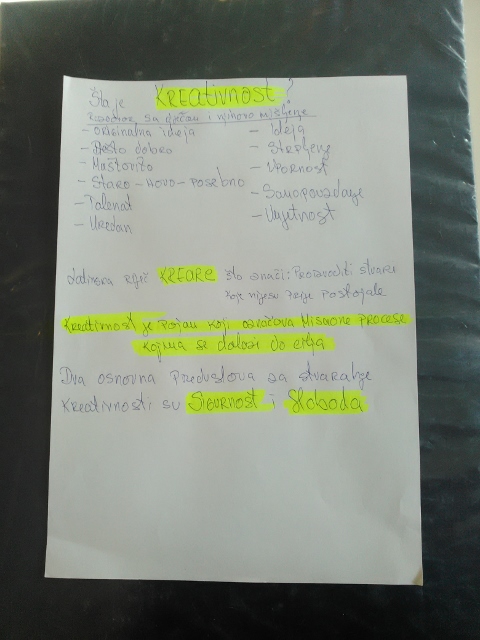 Šta je KREATIVNOST?
Razgovor sa djecom i njihovo mišljenje
- originalna ideja
- Nešto dobro
- Maštovito
- Staro - novo - posebno
- Talenat
- Vrijedan
- Ideja
- Strpljenje
- Upornost
- Samopouzdanje
- Umjetnost
Latinska riječ KREARE što znači: Proizvoditi stvari
koje nijesu prije postojale
Kreativnost je pojam koji označava Misaone procese
kojima se dolazi do cilja
Dva osnovna Preduslova za stvaranje
kreativnosti su Sigurnost i Sloboda